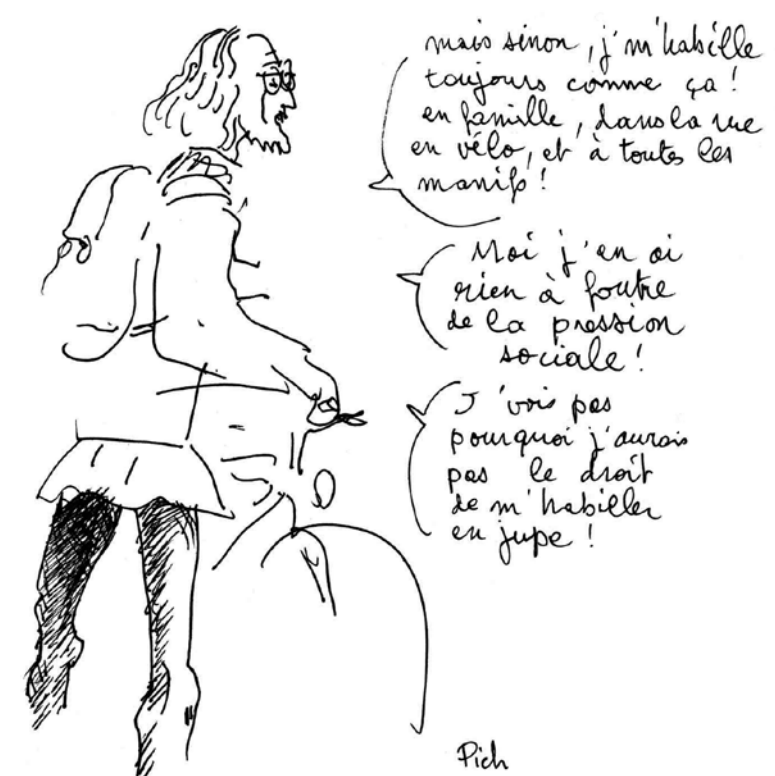 mais sinon, j'm'habille
toujours comme ça !
en famille, dans la rue
en vélo, et à toutes les
manifs !
Moi j'en ai
rien à foutre
de la pression
sociale !
J'vois pas
pourquoi j'aurais
pas le droit
de m'habiller
en jupe !
Pich